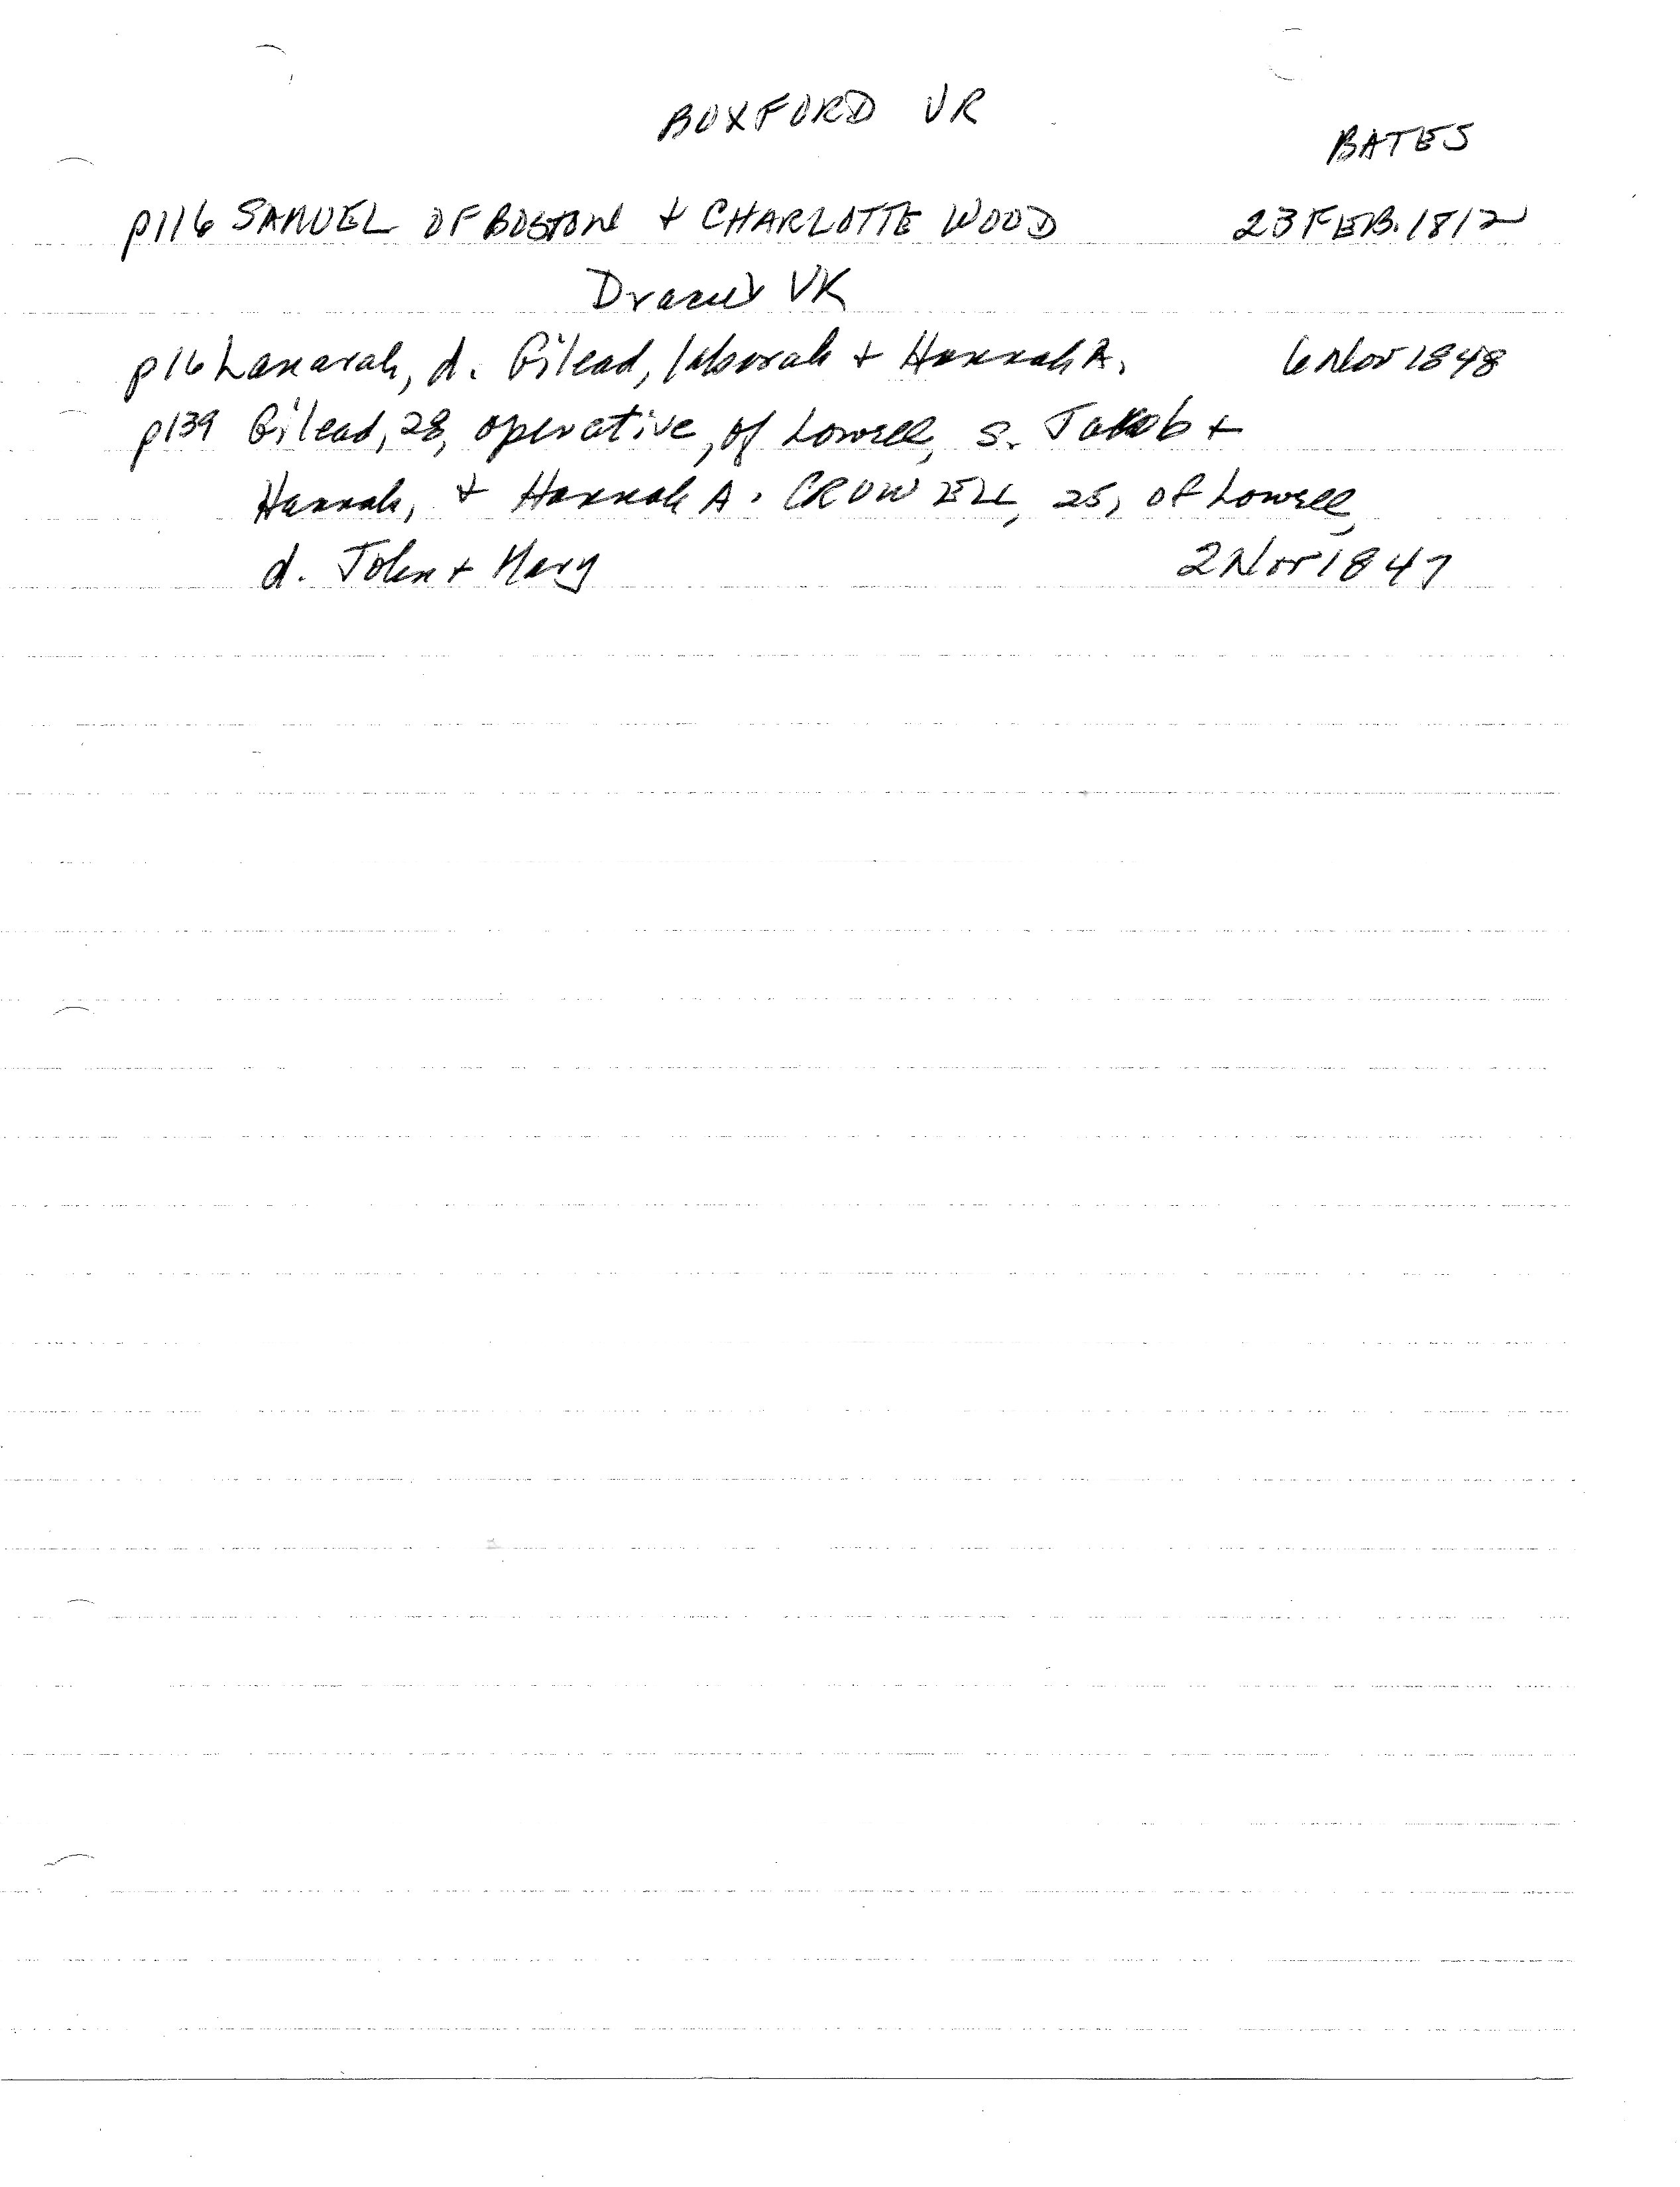 BOXFORD VR
BATES
p116 SAMUEL OF BOSTON + CHARLOTTE WOOD 23 FEB. 1812
Dracut VR
p16 Lanarah, d. Gilead, laborah + Hannah A. 6 Nov 1848
p139 Gilead, 28, operative, of Lowell, s. Jakob +
Hannah, + Hannah A. CROWELL, 25, of Lowell,
d. John + Mary 2 Nov 1847